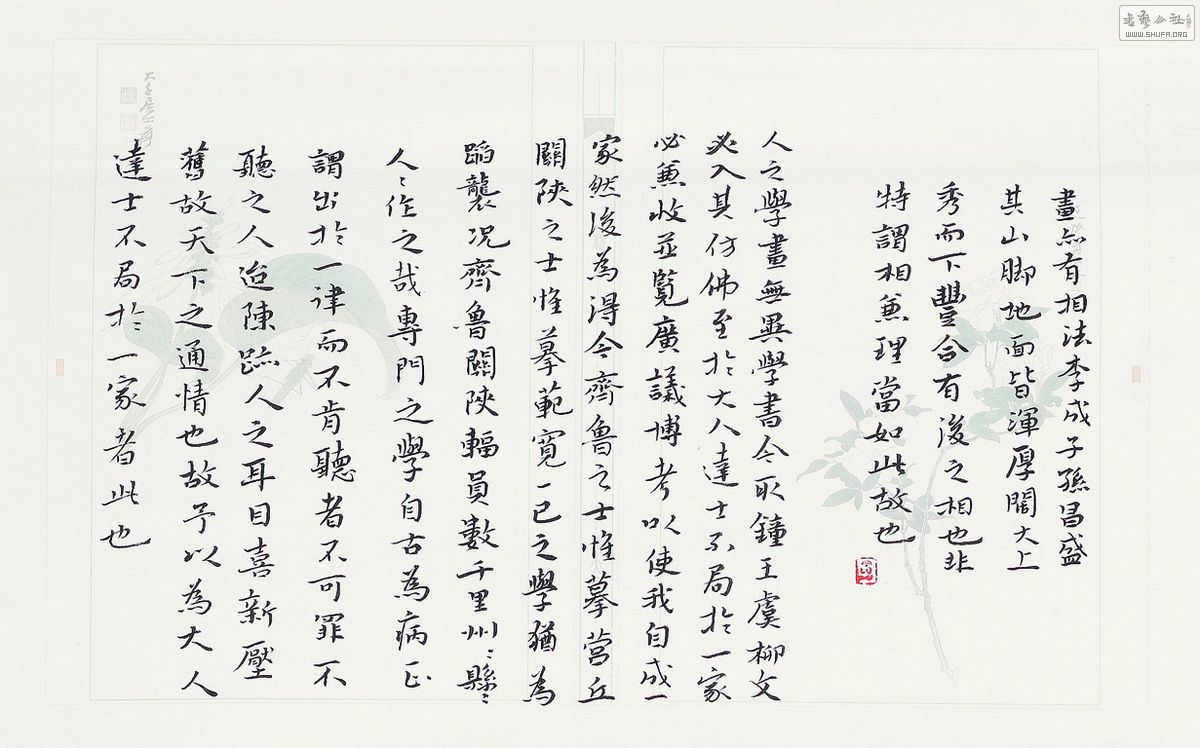 畫亦有相法李成子孫昌盛
其山脚地面皆渾厚闊大上
秀而下豐合有後之相也非
特謂相兼理當如此故也
人之學畫無異學書今取鐘王虞柳文
必入其仿佛至於大人達士不局於一家
必兼收並覧廣議博考以使我自成一
家然後為得今齊魯之士惟摹營丘
關陝之士惟摹範寬一已之學猶為
蹈襲况齊魯關陝輻員數千里州〻縣〻
人〻作之哉專門之學自古為病正
謂出於一律而不肯聽者不可罪不
聽之人迨陳跡人之耳目喜新壓
舊故天下之通情也故予以為大人
達士不局於一家者此也
書藝公社
WWW.SHUFA.ORG